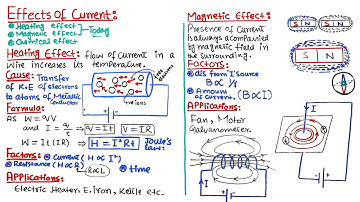 Effects of Current:
Heating effect
Magnetic effect
Chemical effect
Today
Heating Effect: flow of Current in a
wire increases its temperature.
Cause: Transfer
of K.E of electrons
to atoms of Metallic
Conductor
+ive ions
Formula:
As W = qV
and I = q/t ⇒ q = It, V = IR
W = It (IR) ⇒ H = I²Rt Joule's Law:
Factors: Current (H ∝ I²)
Resistance (H ∝ R) R ∝ L time
Applications:
Electric Heater, E.iron, Kettle etc.
Magnetic effect:
Presence of Current
is always accompanied
by magnetic field in
the surrounding.
S N S N
S N
Factors:
dis from I source
B ∝ 1/r
Amount
of current (B ∝ I)
Applications:
Fan, Motor
Galvanometer
I
I